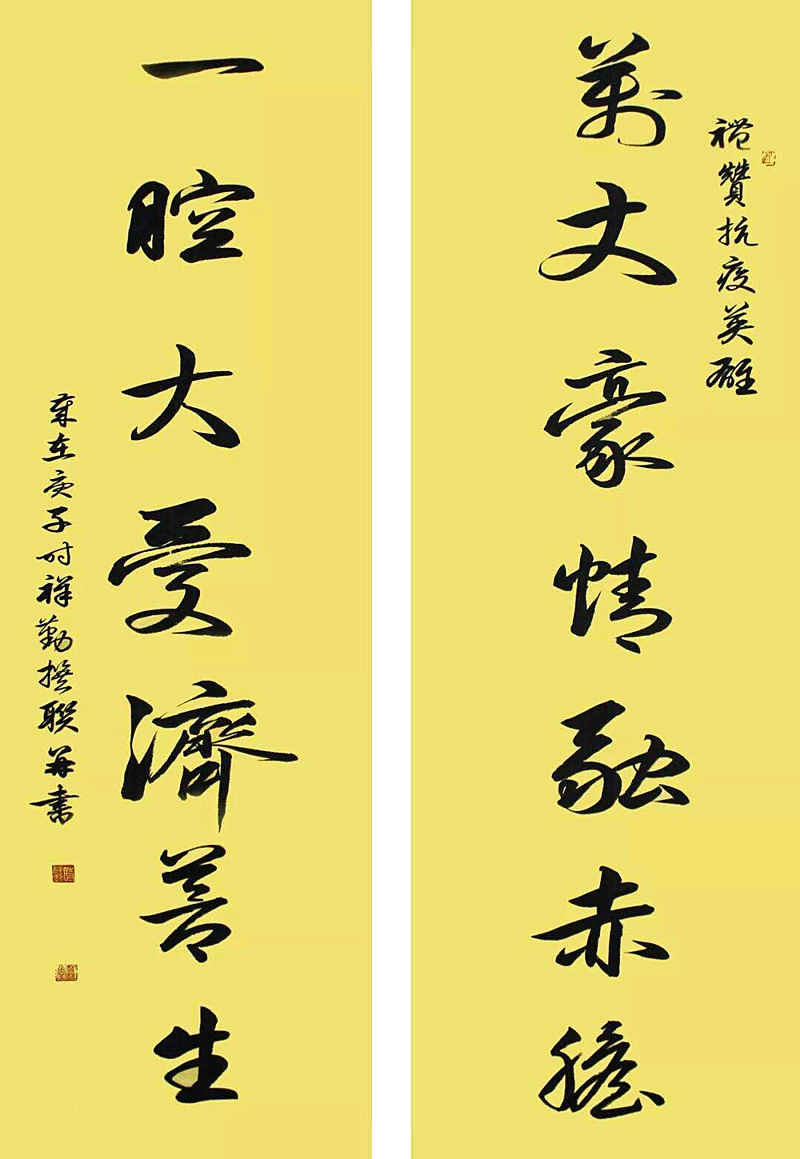 禮贊抗疫英雄
萬丈豪情融赤膽
一腔大愛濟蒼生
歲在庚子时祥勤撰聯并書